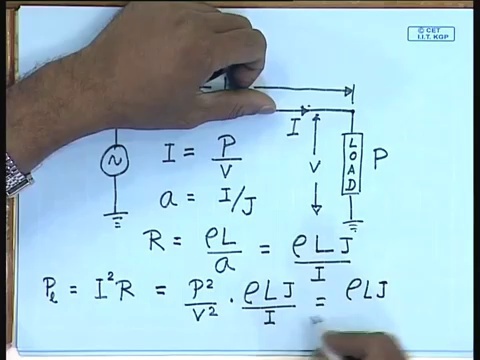 © CET
I.I.T. KGP
I
I = P/V
V
LOAD
P
~
a = I/J
R = ρL/a = ρLJ/I
P_l = I²R = P²/V² · ρLJ/I = ρLJ